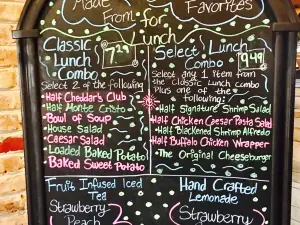 Made Favorites
From for
Lunch
Classic Lunch Combo 7.29
Select 2 of the following
•Half Cheddar's Club
•Half Monte Cristo
•Bowl of Soup
•House Salad
•Caesar Salad
•Loaded Baked Potato
•Baked Sweet Potato
Select Lunch Combo 9.49
Select any 1 Item from
the Classic Lunch combo
Plus one of the
following:
•Half Signature Shrimp Salad
•Half Chicken Caesar Pasta Salad
•Half Blackened Shrimp Alfredo
•Half Buffalo Chicken Wrapper
•The Original Cheeseburger
Fruit Infused Iced
Tea
Strawberry
Peach
Hand Crafted
Lemonade
Strawberry